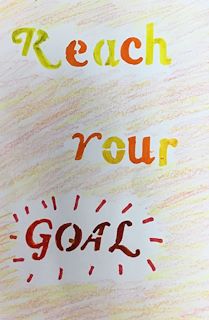 Reach
Your
GOAL